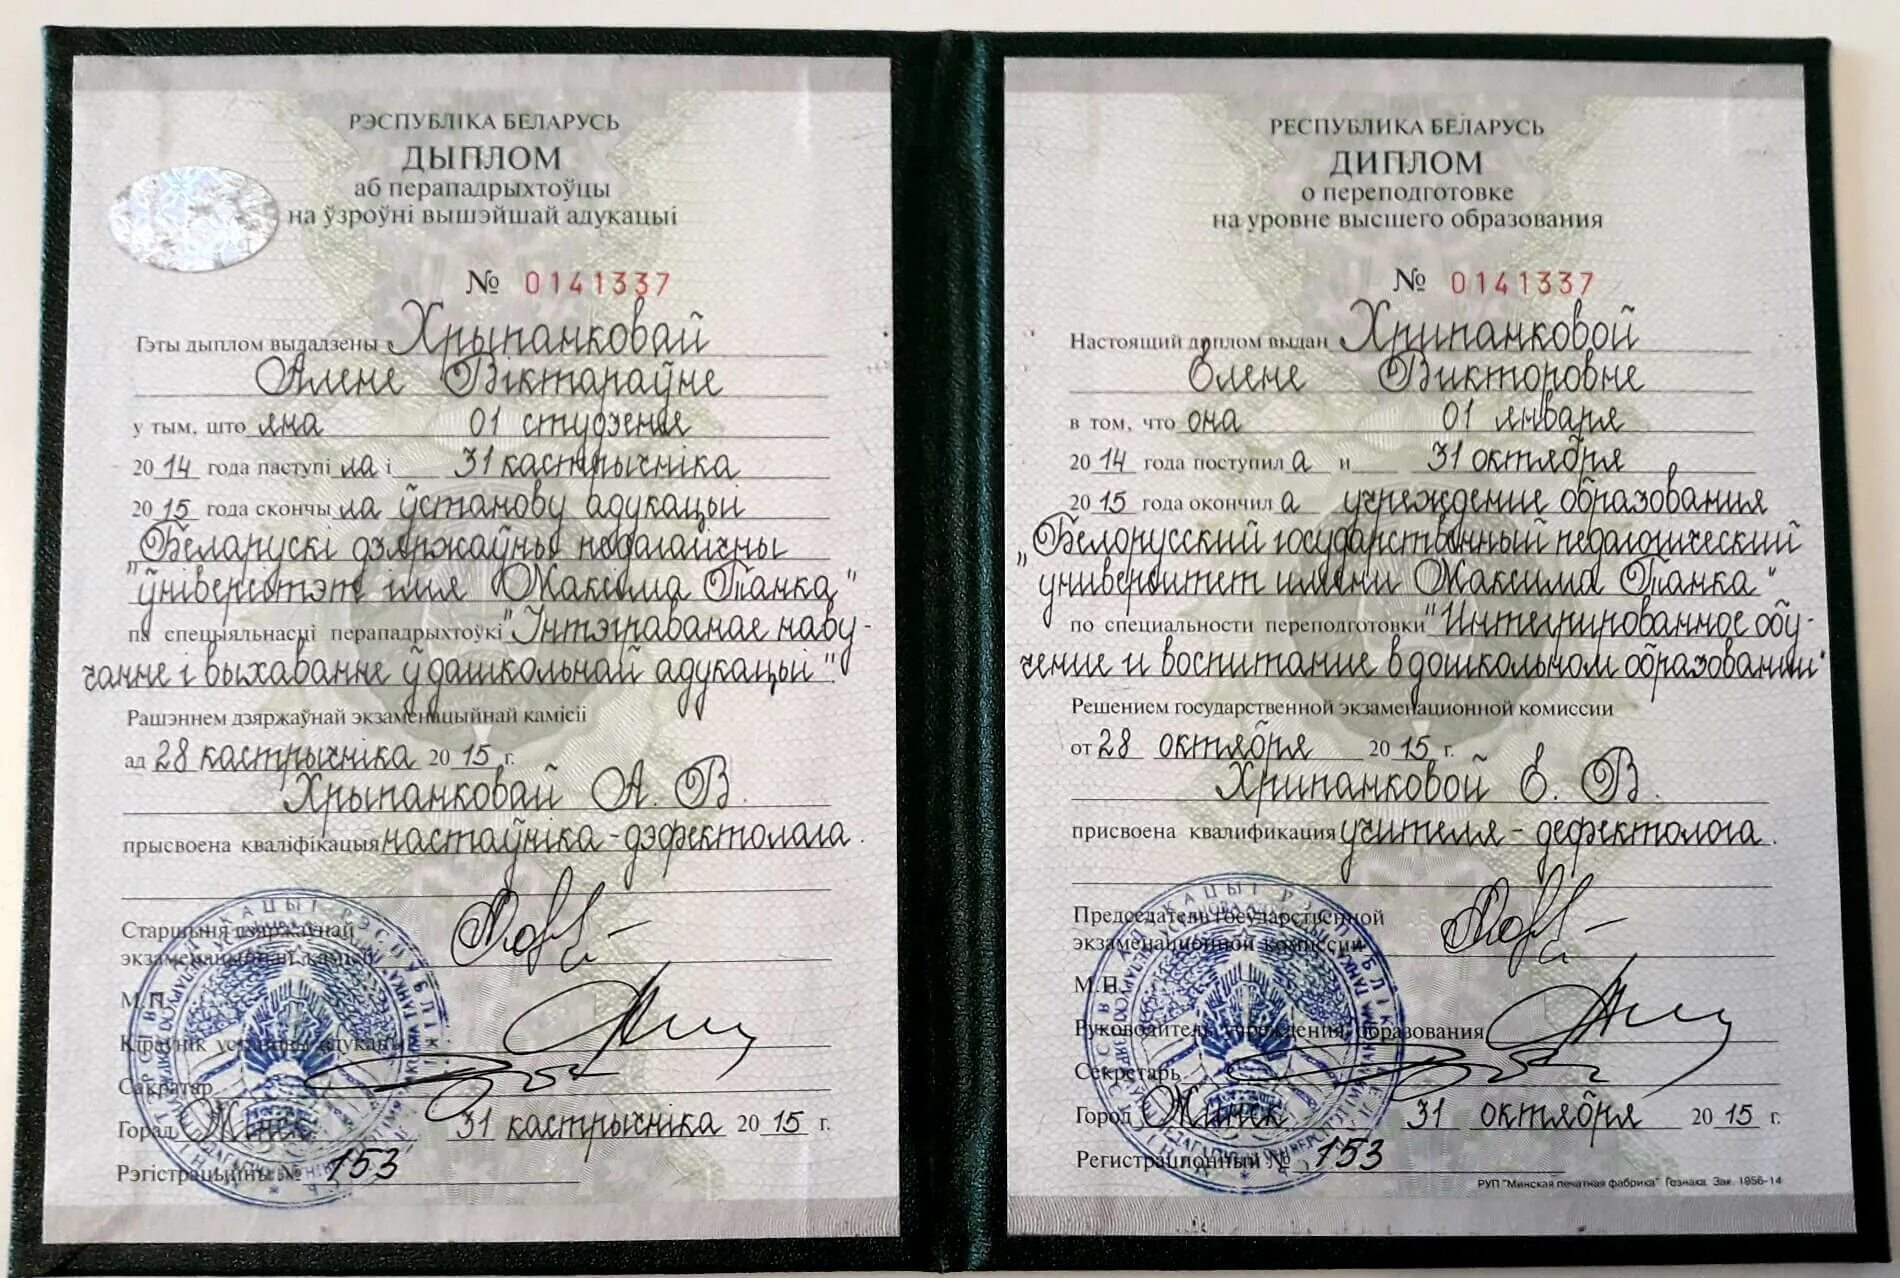 РЭСПУБЛІКА БЕЛАРУСЬ
ДЫПЛОМ
аб перападрыхтоўцы
на ўзроўні вышэйшай адукацыі
№ 0141337
Гэты дыплом выдадзены Хрыпанковай
Алене Віктараўне
у тым, што яна 01 студзеня
2014 года паступіла і 31 кастрычніка
2015 года скончыла ўстанову адукацыі
"Беларускі дзяржаўны педагагічны
ўніверсітэт імя Максіма Танка"
па спецыяльнасці перападрыхтоўкі "Інтэграванае наву-
чанне і выхаванне ў дашкольнай адукацыі".
Рашэннем дзяржаўнай экзаменацыйнай камісіі
ад 28 кастрычніка 2015 г.
Хрыпанковай А. В.
прысвоена кваліфікацыя настаўніка-дэфектолага.
Старшыня дзяржаўнай
экзаменацыйнай камісіі
М.П.
Кіраўнік установы адукацыі
Сакратар
Горад Мінск 31 кастрычніка 2015 г.
Рэгістрацыйны № 153
РЕСПУБЛИКА БЕЛАРУСЬ
ДИПЛОМ
о переподготовке
на уровне высшего образования
№ 0141337
Настоящий диплом выдан Хрипанковой
Елене Викторовне
в том, что она 01 января
2014 года поступила и 31 октября
2015 года окончила учреждение образования
"Белорусский государственный педагогический
университет имени Максима Танка"
по специальности переподготовки "Интегрированное обу-
чение и воспитание в дошкольном образовании"
Решением государственной экзаменационной комиссии
от 28 октября 2015 г.
Хрипанковой Е. В.
присвоена квалификация учителя-дефектолога.
Председатель государственной
экзаменационной комиссии
М.П.
Руководитель учреждения образования
Секретарь
Город Минск 31 октября 2015 г.
Регистрационный № 153
РУП "Минская печатная фабрика" Гознака. Зак. 1856-14